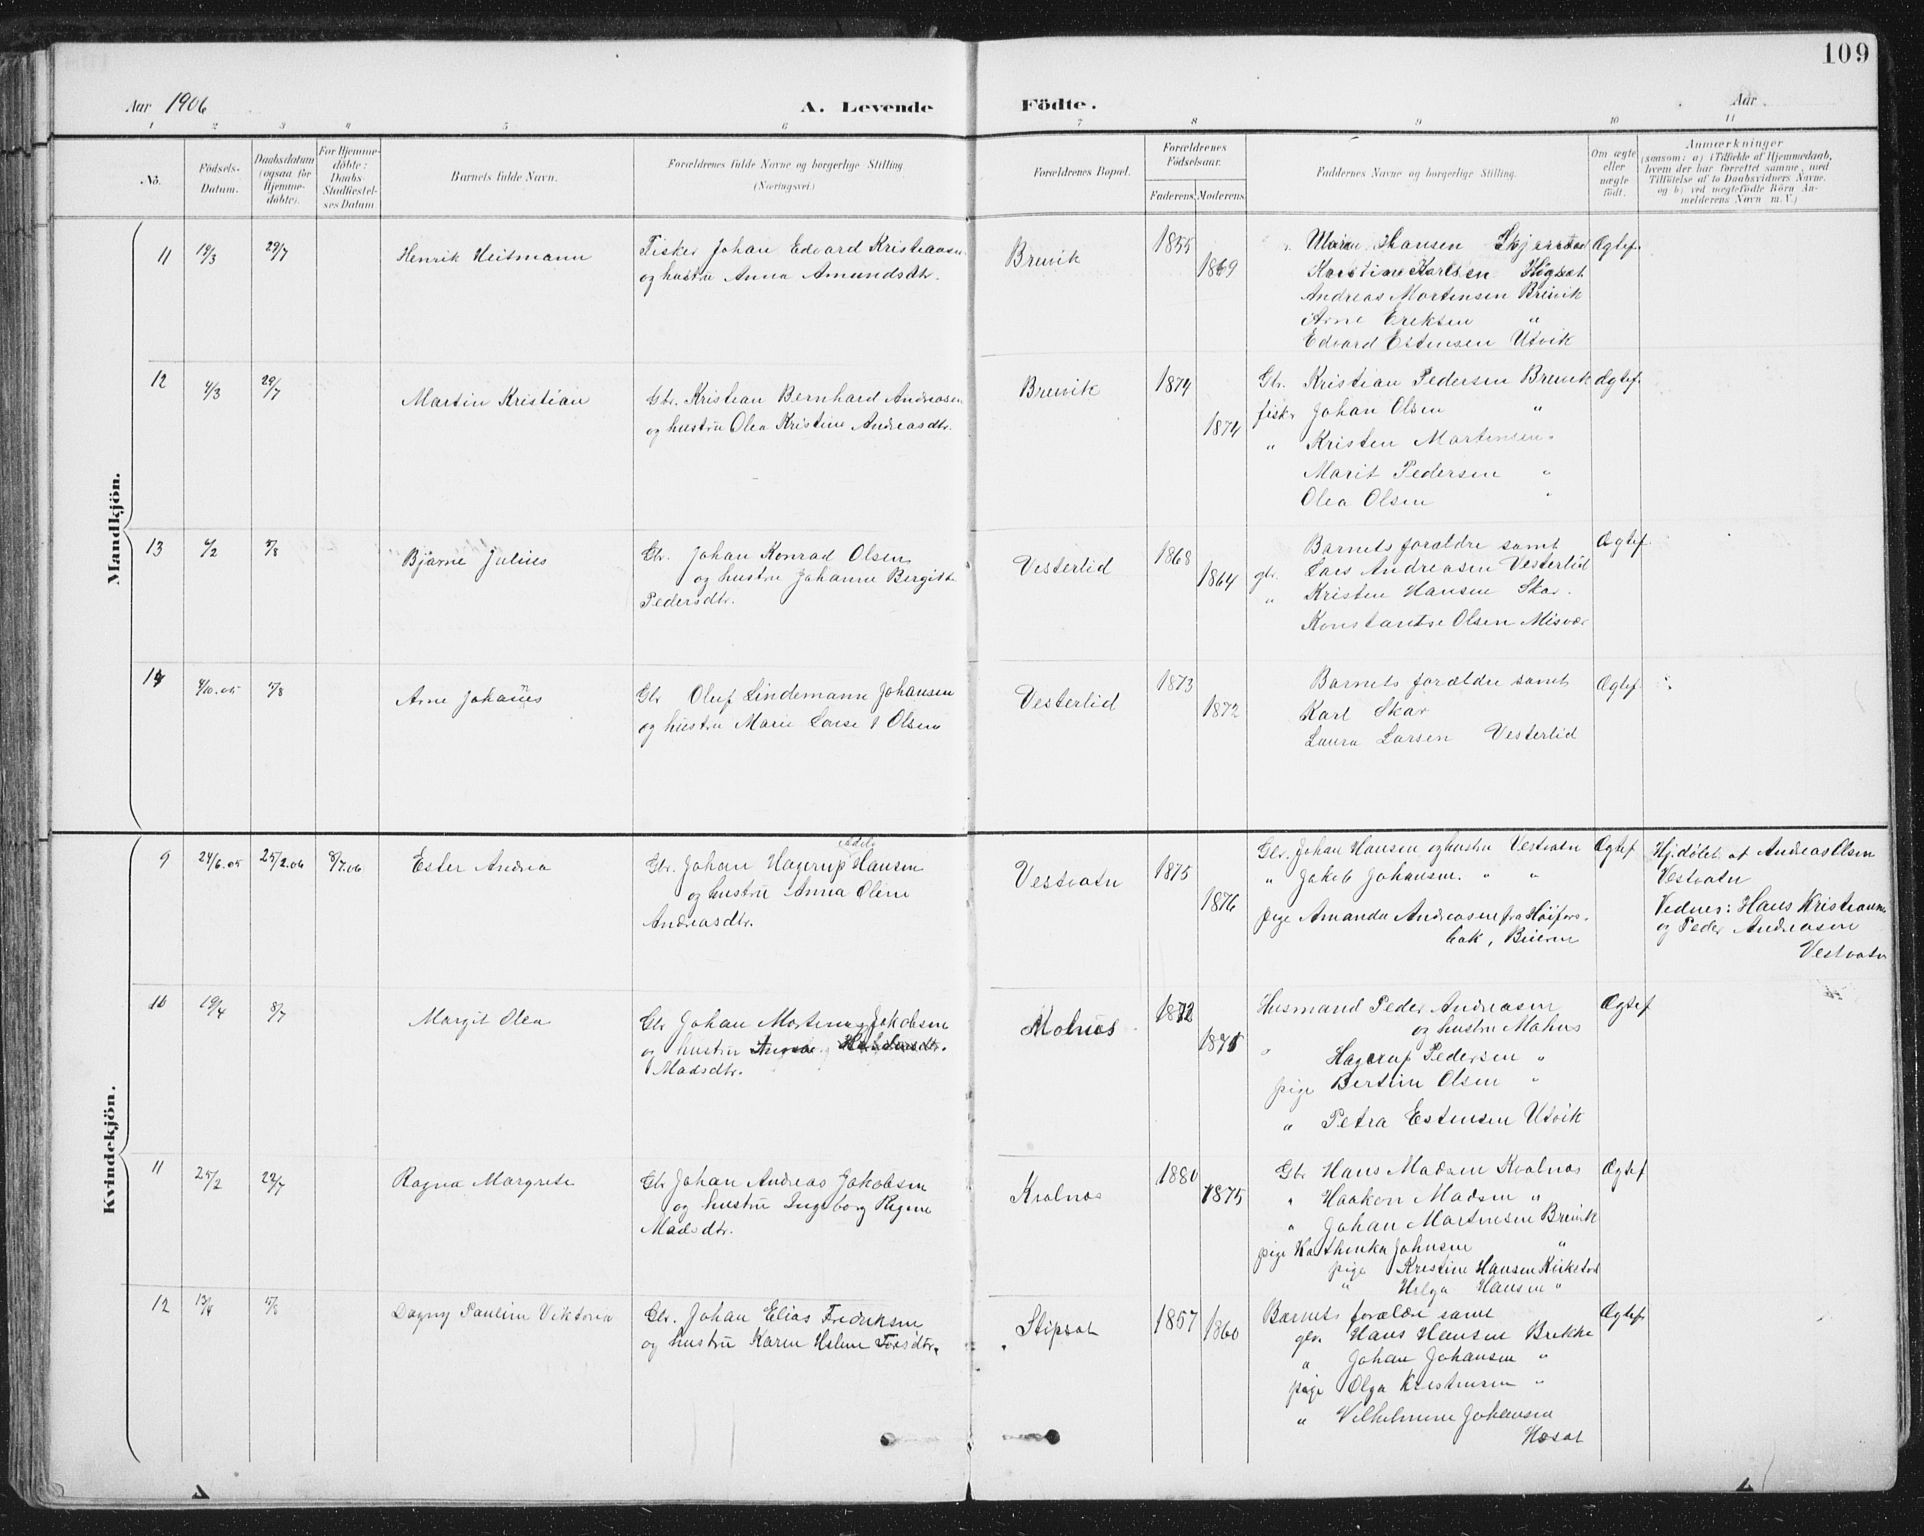 109
Aar 1906
A. Levende Födte.
Aar
1 2 3 4 5 6 7 8 9 10 11
No.
Födsels-Datum.
Daabsdatum (ogsaa for Hjemme-döbte).
For Hjemme-döbte: Daabs-Stadfæstel-ses Datum.
Barnets fulde Navn.
Forældrenes fulde Navne og borgerlige Stilling (Næringsvei.)
Forældrenes Bopæl.
Forældrenes Födselsaar.
Faderens. Moderens.
Faddernes Navne og borgerlige Stilling.
Om ægte eller uægte födt.
Anmærkninger
(saasom: a) i Tilfælde af Hjemmedaab,
hvem der har forrettet samme, med
Tilföielse af to Daabsvidners Navne.
og b) ved uægtefödte Börn An-
melderens Navn m. V.)
Mandkjön.
11 19/3 29/7
Henrik Heitmann
Fisker Johan Edvard Kristiansen
og hustru Anna Amundsdtr.
Breivik
1855
1869
Maren Hansen Skjerstad
Karstine Karlsen
Andreas Mortensen Breivik
Arne Eriksen "
Edvard Estensen Utvik
Ægtef.
12 4/3 29/7
Martin Kristian
Gbr. Kristian Bernhard Andreasen
og hustru Olea Kristine Andreasdtr.
Breivik
1874
1874
Gbr. Kristian Pedersen Breivik
fisker Johan Olsen "
" Kristen Mortensen "
Marit Pedersen "
Olea Olsen "
Ægtef.
13 6/2 5/8
Bjarne Julius
Gbr. Johan Konrad Olsen
og hustru Johanne Bergitte
Pedersdtr.
Vesterlid
1868
1864
Barnets forældre samt
gbr. Lars Andreasen Vesterlid
" Kristen Hansen Skar.
Konstantse Olsen Misvær
Ægtef.
14 4/10.05 5/8
Arne Johannes
Gbr Oluf Lindemann Johansen
og hustru Marie Lovise Olsen
Vesterlid
1873
1872
Barnets forældre samt
Karl Skar
Laura Larsen Vesterlid
Ægtef.
Kvindekjön.
9 24/6.05 25/2.06 8/7.06
Ester Andrea
Adels
Gbr. Johan Hagerup Hansen
og hustru Anna Oline
Andreasdtr.
Vestvatn
1875
1876
Gbr. Johan Hansen og hustru Vestvatn
" Jakob Johansen. " "
pige Amanda Andreasen fra Høifors-
bak, Beieren
Ægtef
Hj.døbt af Andreas Olsen
Vestvatn
Vidnes: Hans Kristiansen
og Peder Andreasen
Vestvatn
10 19/4 8/7
Margit Olea
Gbr Johan Martinus Jakobsen
og hustru
Madsdtr.
1872
1875
Husmand Peder Andreasen
og hustru
" Hagerup Pedersen "
pige Bertine Olsen "
" Petra Estensen Utvik
Ægtef
11 25/2 29/7
Ragna Margrete
Gbr Johan Andreas Jakobsen
og hustru Ingeborg Regine
Madsdtr.
Kvalnes
1880
1875
Gbr Hans Madsen Kvalnes
" Haakon Madsen "
" Johan Martinsen Breivik
pige Kathinka Johnsen "
pige Kristine Hansen
" Helga Hansen "
Ægtef
12 13/4 5/8
Dagny Pauline Viktoria
Gbr. Johan Elias Fredriksen
og hustru Karen Helene Torsdtr.
1857 1860
Barnets forældre samt
gbr. Hans Hansen Brekke
" Johan Johansen "
pige Olga Kristensen "
" Vilhelmine Johansen
Ægtef.